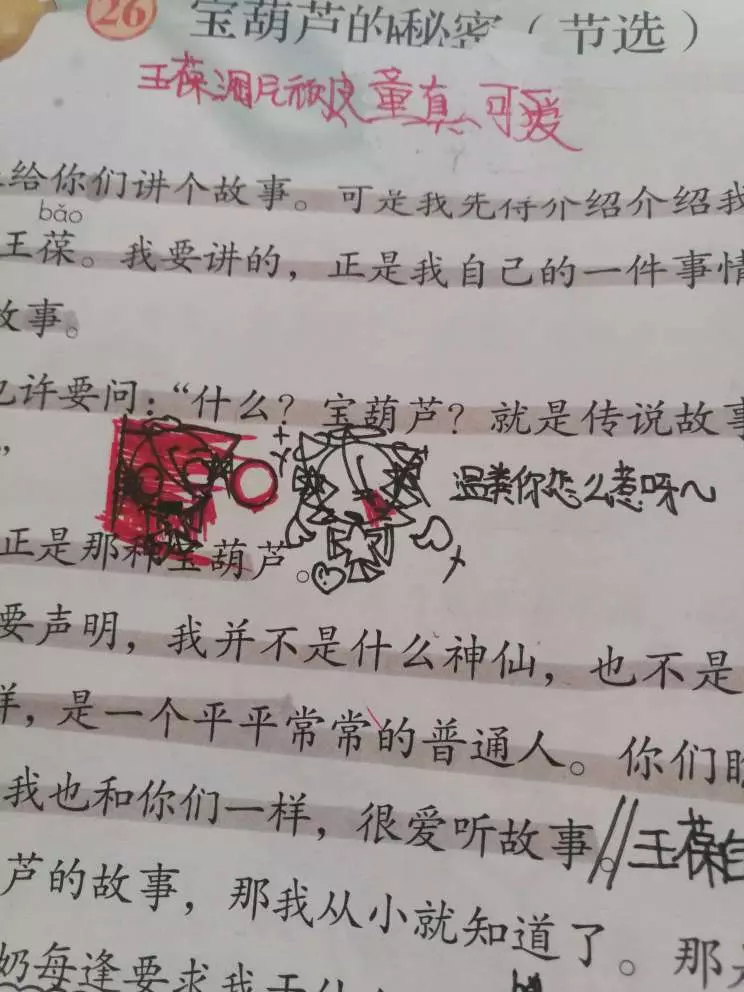 26 宝葫芦的秘密（节选）
王葆淘气顽皮童真可爱
给你们讲个故事。可是我先得介绍介绍我
bǎo
王葆。我要讲的，正是我自己的一件事情
故事。
也许要问：“什么？宝葫芦？就是传说故事
”
温类你怎么惹呀～
正是那种宝葫芦。
要声明，我并不是什么神仙，也不是
样，是一个平平常常的普通人。你们
我也和你们一样，很爱听故事。//王葆自
芦的故事，那我从小就知道了。那
奶每逢要求我干什